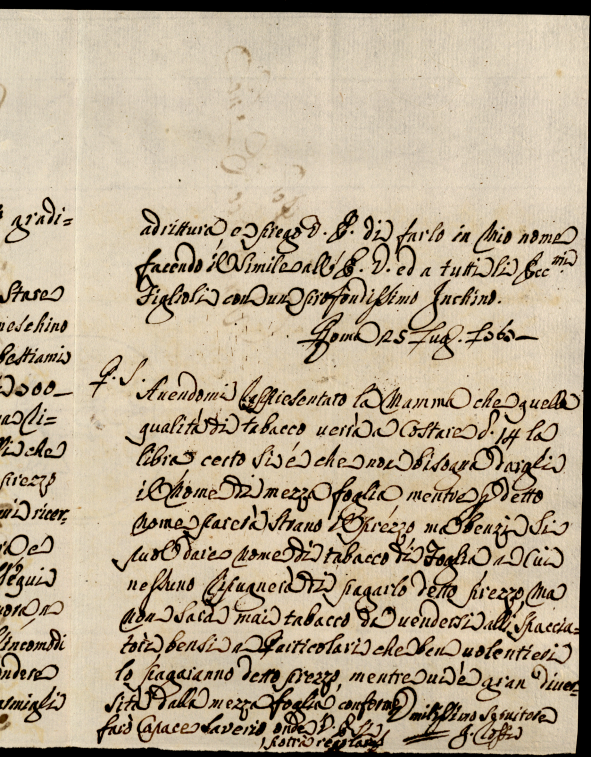 gradi=
Stare
meschino
bestiami
300
che
prezzo
ricer=
Seguir
incomodi
adrittura e prego V. E. di farlo in Mio nome
facendo il Simile all' E. V. ed a tutti li Ecc.mi
Figlioli con un profondissimo Inchino.
Roma 25 Lug.
P. S.
Avendomi Rappresentato la Mamma che quella
qualità di tabacco verrà a Costare d. 14 la
libra certo Si è che non bisogna dargli
il Nome di mezza foglia mentre detto
Nome parerà Strano il prezzo ma benzi Si
può dare Nome di tabacco di Foglia a Cui
nessuno Ripugnerà di pagarlo detto prezzo Ma
non Sarà mai tabacco da Vendersi alli Spaccia=
tori bensi a Particolari che ben volentieri
lo pagaranno detto prezzo, mentre vi è gran diver=
sità dalla mezza foglia, conforme
farò Capace Saverio onde V. E.
potrà regolarsi
Umilissimo Servitore